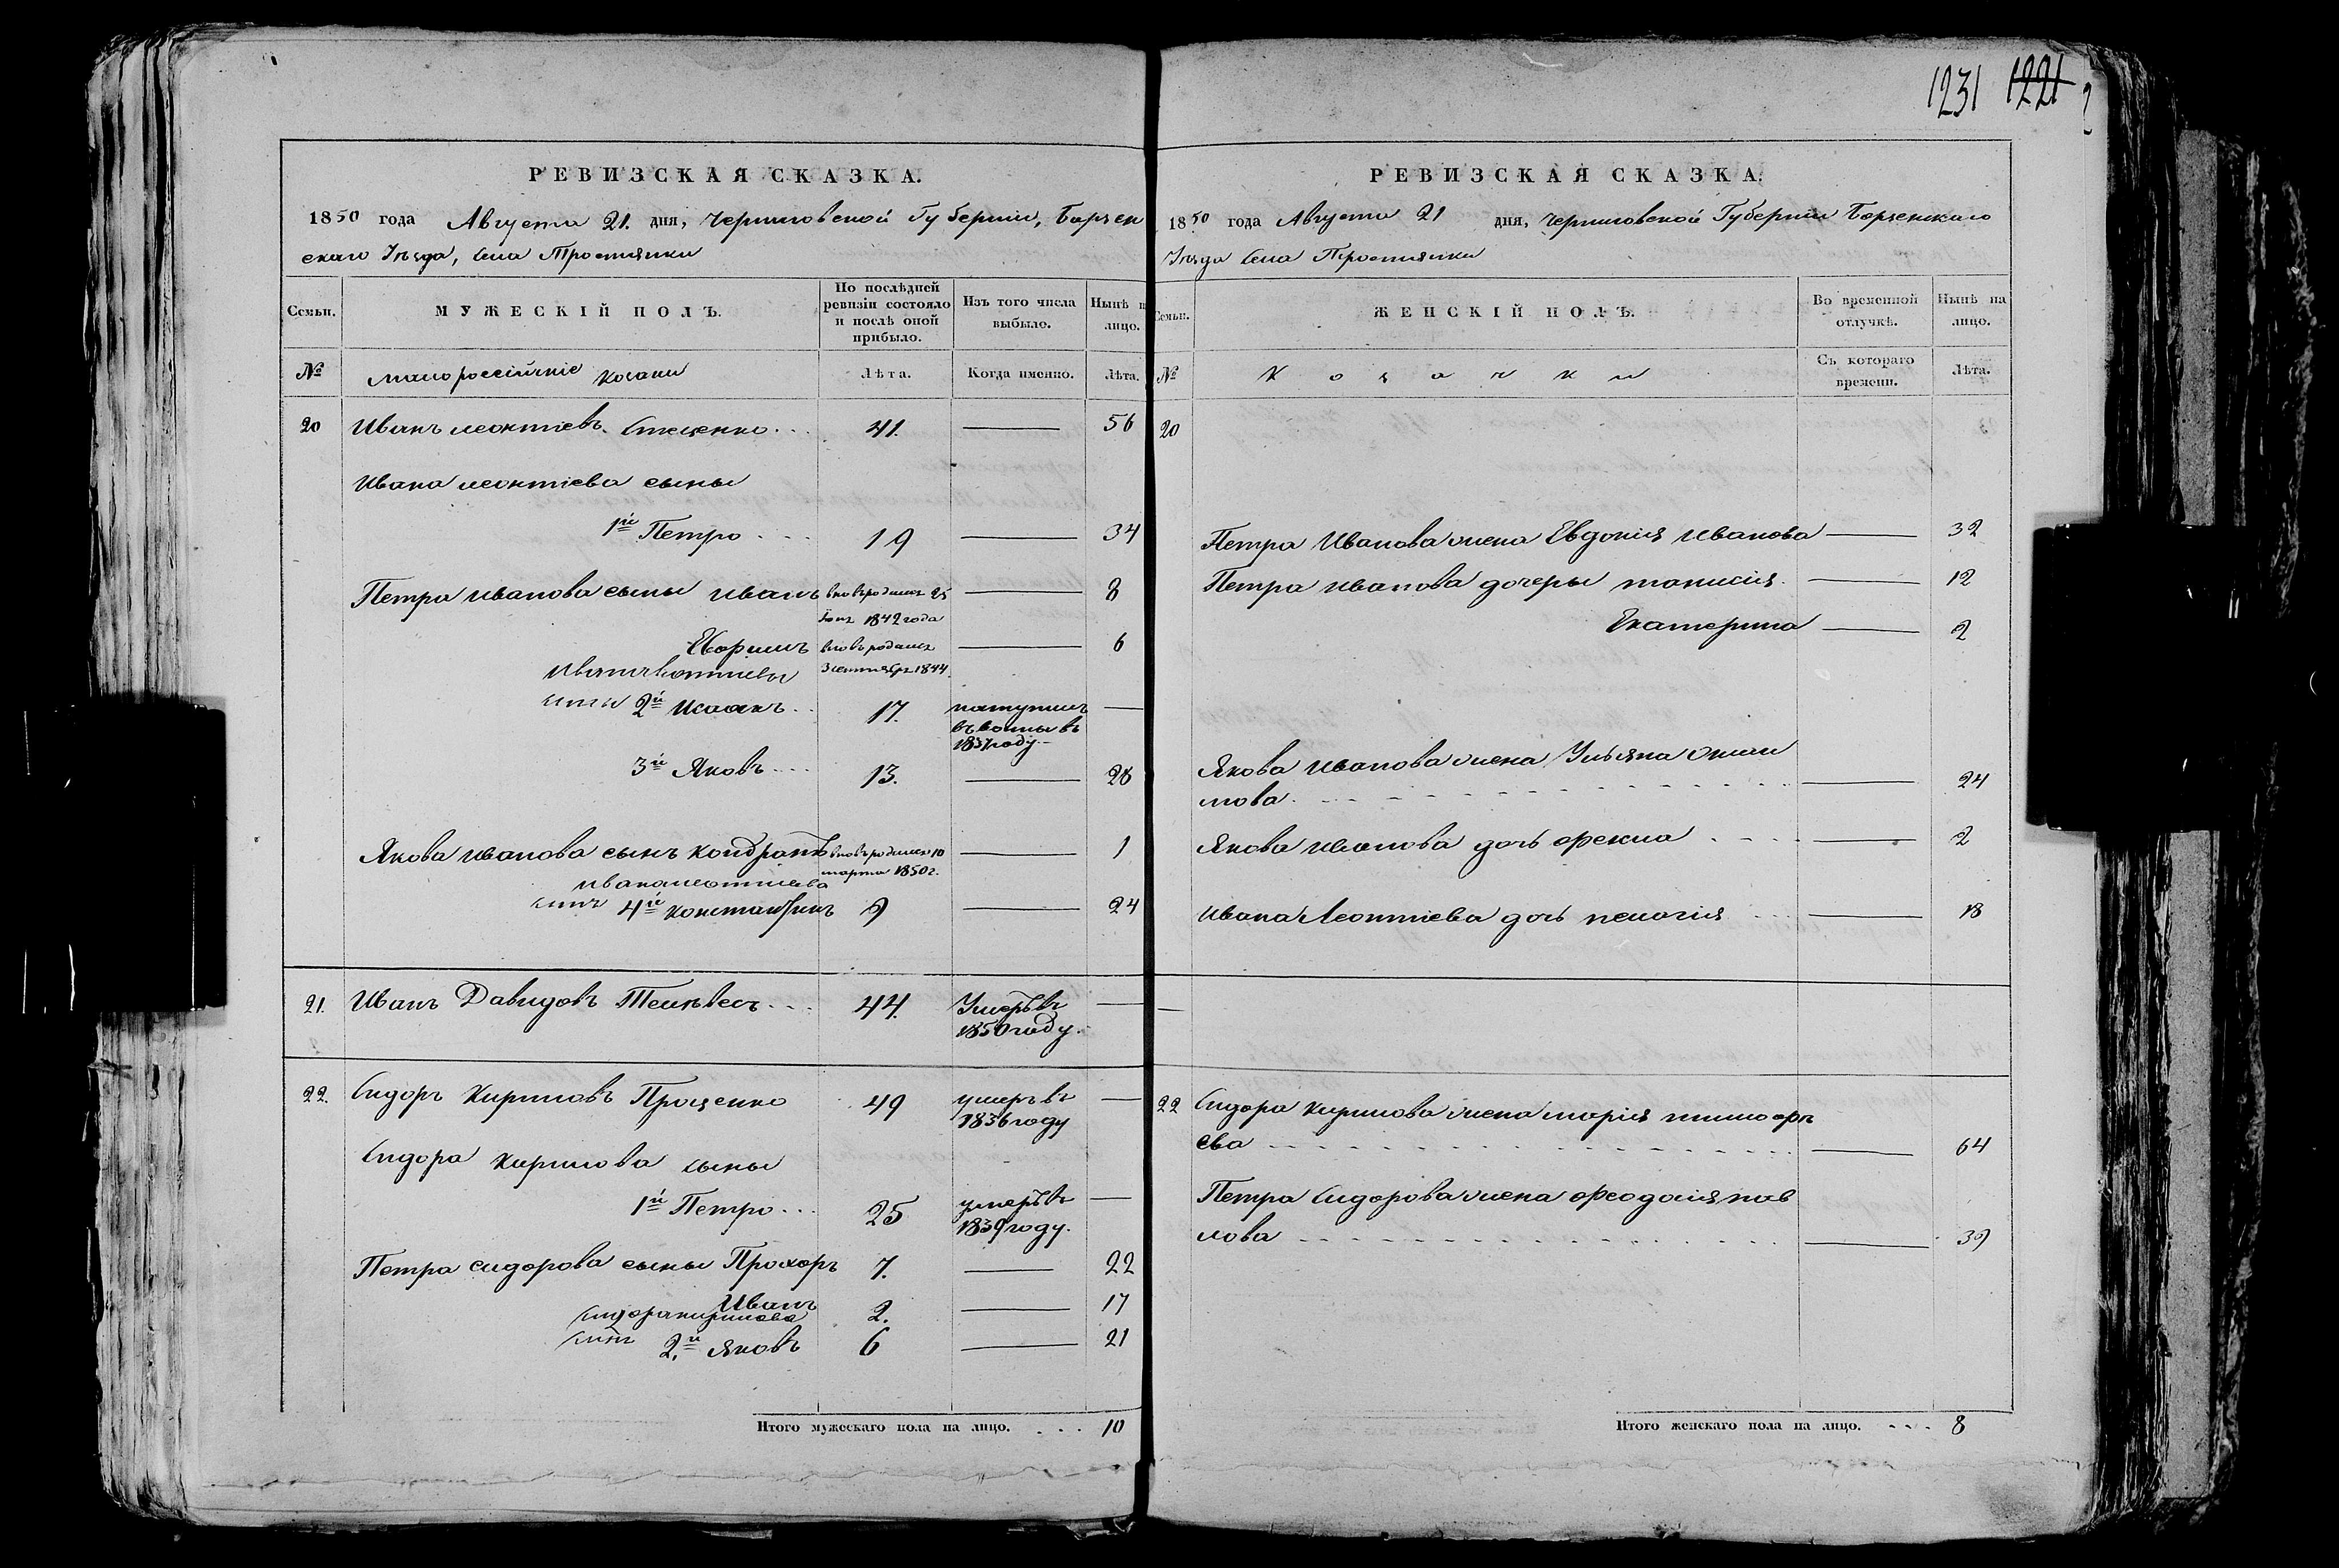 1231 1221
РЕВИЗСКАЯ СКАЗКА.
1850 года Августа 21. дня, Черниговской Губернiи, Борзен
скаго Уѣзда, Села Тростянки
Семьи. МУЖЕСКIЙ ПОЛЪ. По послѣдней ревизiи состояло и послѣ оной прибыло. Изъ того числа выбыло. Нынѣ н лицо.
№ Малороссiйскiе козаки Лѣта. Когда именно. Лѣта.
20 Иванъ Леонтiевъ Стеценко 41. 56
Ивана Леонтiева сыны
1й Петро 19 34
Петра Иванова сыны Иванъ вновь родился 25 8
1842 года
вновь родился 6
1844
сынъ 2й Исаакъ 17. поступилъ
1837 году
3й Яковъ 13. 28
Якова Иванова сынъ Кондратъ вновь родился 10 1
Ивана Леонтиева марта 1850 г.
сынъ 4й Константинъ 9 24
21. Иванъ Давидовъ 44. Умеръ въ
1850 году
22. Сидоръ Кириловъ Проценко 49 умеръ въ
1836 году
Сидора Кирилова сыны
1й Петро 25 умеръ въ
1839 году.
Петра Сидорова сыны Прохоръ 7. 22
Иванъ 2. 17
Сидора Кирилова
сынъ 2й Яковъ 6 21
Итого мужескаго пола на лицо. 10
РЕВИЗСКАЯ СКАЗКА.
1850 года Августа 21 дня, Черниговской Губернiи Борзенскаго
Уѣзда Села Тростянки
Семьи. ЖЕНСКIЙ ПОЛЪ. Во временной отлучкѣ. Нынѣ на лицо.
№ Козачки Съ котораго времени. Лѣта.
20
Петра Иванова жена Евдокiя Иванова 32
Петра Иванова дочеры 12
Екатерина 2
Якова Иванова жена Ульяна
24
Якова Иванова дочь 2
Ивана Леонтiева дочь Пелагiя 18
22 Сидора Кирилова жена Марiя Тимофѣ
ева 64
Петра Сидорова жена Феодосiя Пав
лова 39
Итого женскаго пола на лицо. 8